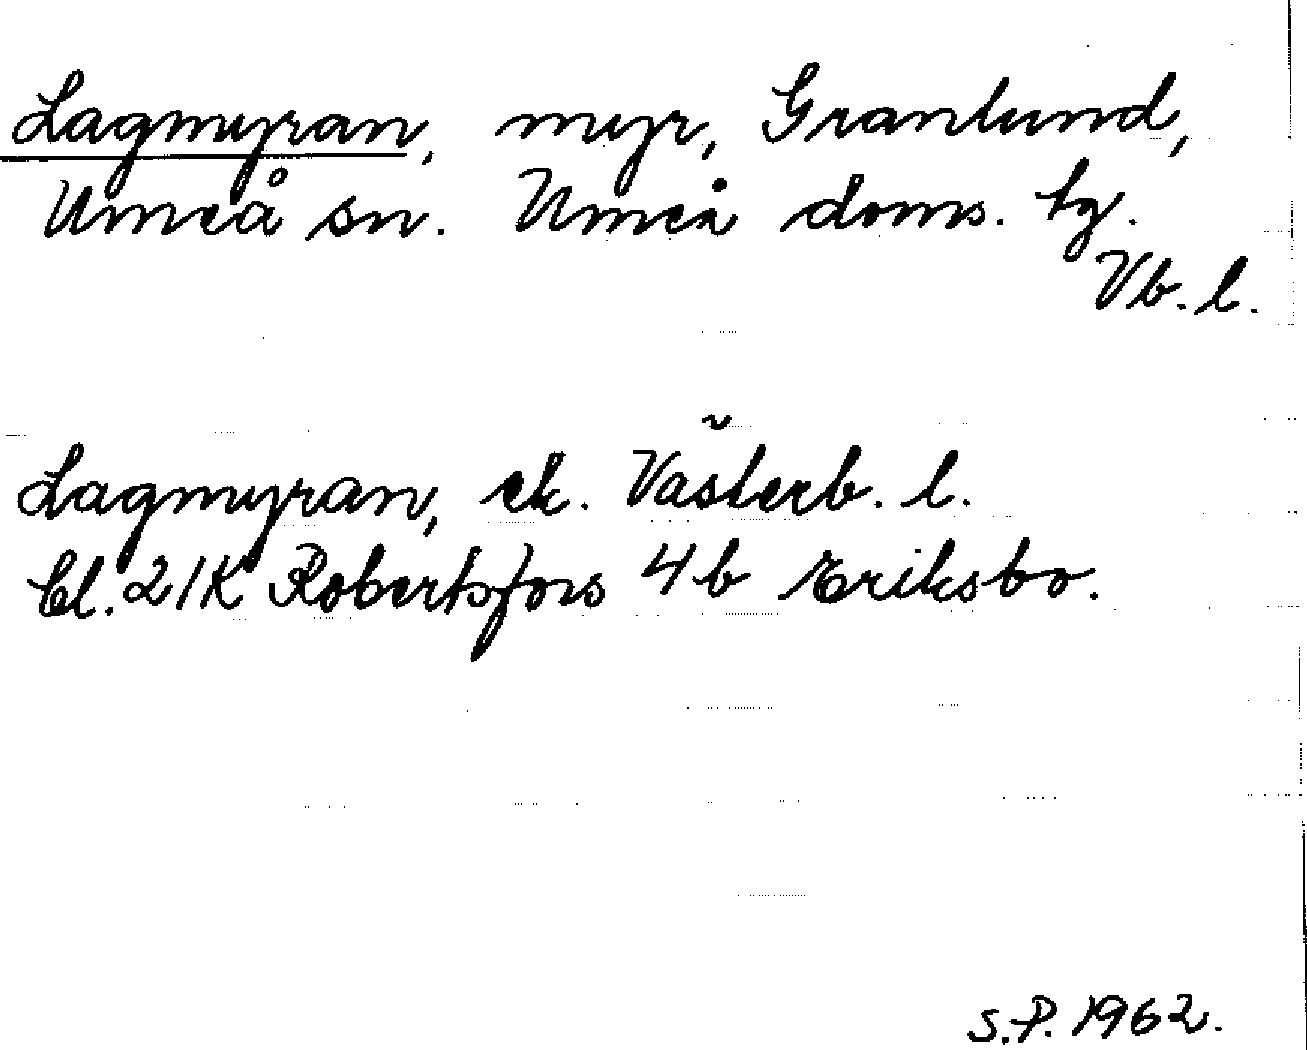 Lagmyran, myr, Granlund,
Umeå sn. Umeå doms. tg.
Vb. l.
Lagmyran, ek. Västerb. l.
bl. 21K Robertsfors 4b Eriksbo.
S.P. 1962.